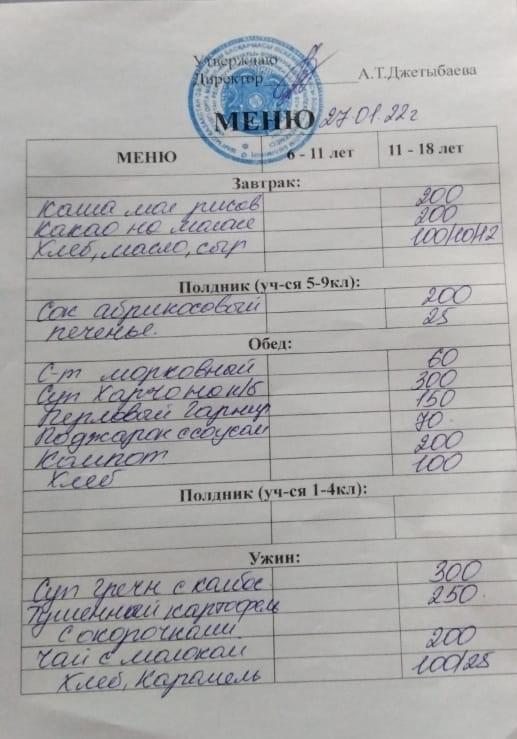 Утверждаю
Директор А.Т.Джетыбаева
МЕНЮ 27.01.22г
МЕНЮ 6 - 11 лет 11 - 18 лет
Завтрак:
Каша мол рисов 200
Какао на молоке 200
Хлеб, масло, сыр 100/10/12
Полдник (уч-ся 5-9кл):
Сок абрикосовый 200
печенье. 25
Обед:
С-т морковный 60
Суп Харчо на к/б 300
Перловый Гарнир 150
Поджарок с соусом 70
Компот 200
Хлеб 100
Полдник (уч-ся 1-4кл):
Ужин:
Суп гречн с колбос 300
Тушенный картофель 250
с окорочками
Чай с молоком 200
Хлеб, Карамель 100/25